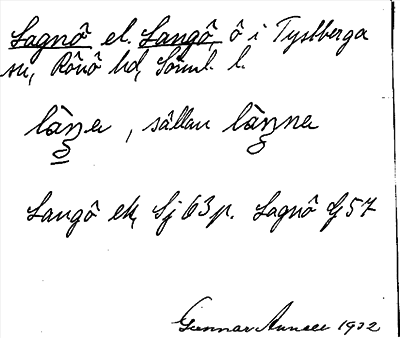 Lagnö el. Langö, ö i Tystberga
sn, Rönö hd, Söml. l.
làŋa, sällan làŋna
Langö ek, Sj 63 p. Lagnö Gj 57
Gunnar 1932